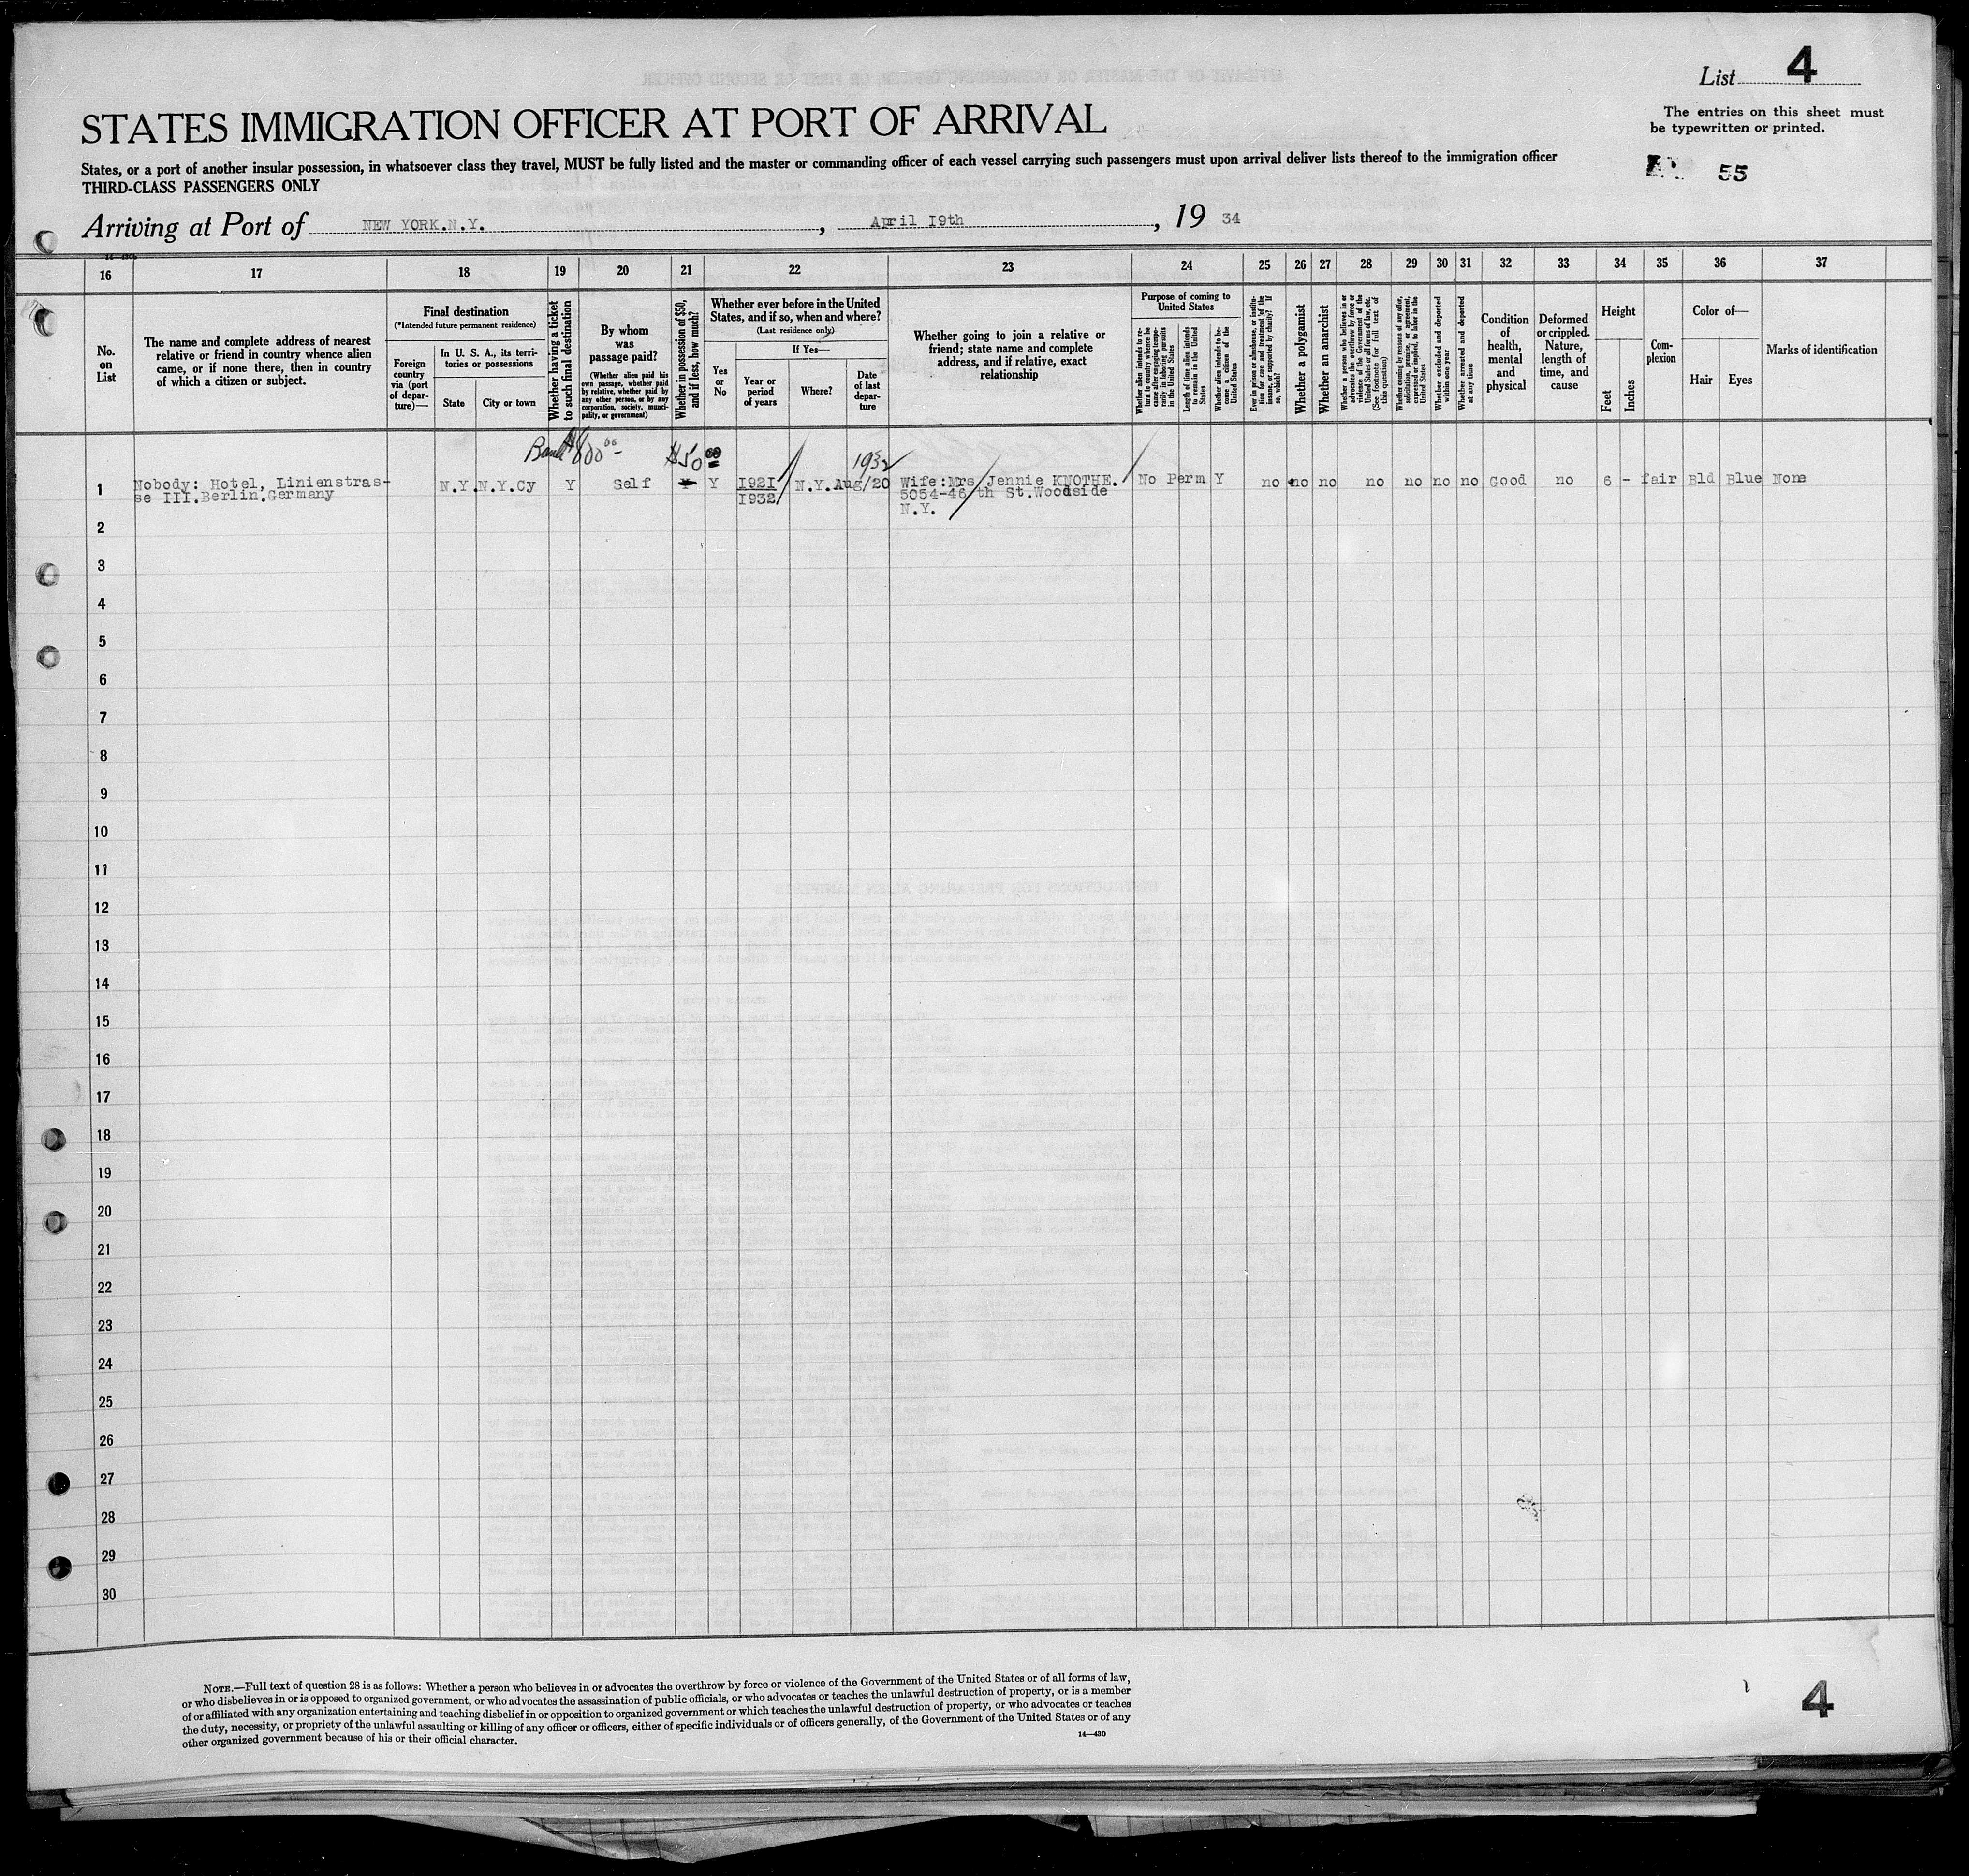 List 4
STATES IMMIGRATION OFFICER AT PORT OF ARRIVAL
The entries on this sheet must
be typewritten or printed.
States, or a port of another insular possession, in whatsoever class they travel, MUST be fully listed and the master or commanding officer of each vessel carrying such passengers must upon arrival deliver lists thereof to the immigration officer
THIRD-CLASS PASSENGERS ONLY
55
Arriving at Port of NEW YORK.N.Y. , April I9th , 19 34
16 17 18 19 20 21 22 23 24 25 26 27 28 29 30 31 32 33 34 35 36 37
No.
on
List
The name and complete address of nearest
relative or friend in country whence alien
came, or if none there, then in country
of which a citizen or subject.
Final destination
(*Intended future permanent residence)
Foreign
country
via (port
of depar-
ture)—
In U. S. A., its terri-
tories or possessions
State
City or town
Whether having a ticket
to such final destination
By whom
was
passage paid?
(Whether alien paid his
own passage, whether paid
by relative, whether paid by
any other person, or by any
corporation, society, munici-
pality, or government)
Whether in possession of $50,
and if less, how much?
Whether ever before in the United
States, and if so, when and where?
(Last residence only)
Yes
or
No
If Yes—
Year or
period
of years
Where?
Date
of last
depar-
ture
Whether going to join a relative or
friend; state name and complete
address, and if relative, exact
relationship
Purpose of coming to
United States
Whether alien intends to re-
turn to country whence he
came after engaging tempo-
rarily in laboring pursuits
in the United States
Length of time alien intends
to remain in the United
States
Whether alien intends to be-
come a citizen of the
United States
Ever in prison or almshouse, or institu-
tion for care and treatment of the
insane, or supported by charity? If
so, which?
Whether a polygamist
Whether an anarchist
Whether a person who believes in or
advocates the overthrow by force or
violence of the Government of the
United States or all forms of law, etc.
(See footnote for full text of
this question)
Whether coming by reasons of any offer,
solicitation, promise, or agreement,
expressed or implied, to labor in the
United States
Whether excluded and deported
within one year
Whether arrested and deported
at any time
Condition
of
health,
mental
and
physical
Deformed
or crippled.
Nature,
length of
time, and
cause
Height
Feet
Inches
Com-
plexion
Color of—
Hair
Eyes
Marks of identification
Bank $800.00 $50 00 1932
1 Nobody: Hotel, Linienstras- N.Y. N.Y.Cy Y Self Y Y I921 N.Y. Aug/20 Wife:Mrs Jennie KNOTHE. No Perm Y no no no no no no no Good no 6 - fair Bld Blue None
se III.Berlin.Germany I932 5054-46 th St.Woodside
N.Y.
2
3
4
5
6
7
8
9
10
11
12
13
14
15
16
17
18
19
20
21
22
23
24
25
26
27
28
29
30
NOTE.—Full text of question 28 is as follows: Whether a person who believes in or advocates the overthrow by force or violence of the Government of the United States or of all forms of law,
or who disbelieves in or is opposed to organized government, or who advocates the assassination of public officials, or who advocates or teaches the unlawful destruction of property, or is a member
of or affiliated with any organization entertaining and teaching disbelief in or opposition to organized government or which teaches the unlawful destruction of property, or who advocates or teaches
the duty, necessity, or propriety of the unlawful assaulting or killing of any officer or officers, either of specific individuals or of officers generally, of the Government of the United States or of any
other organized government because of his or their official character.
14—430
4